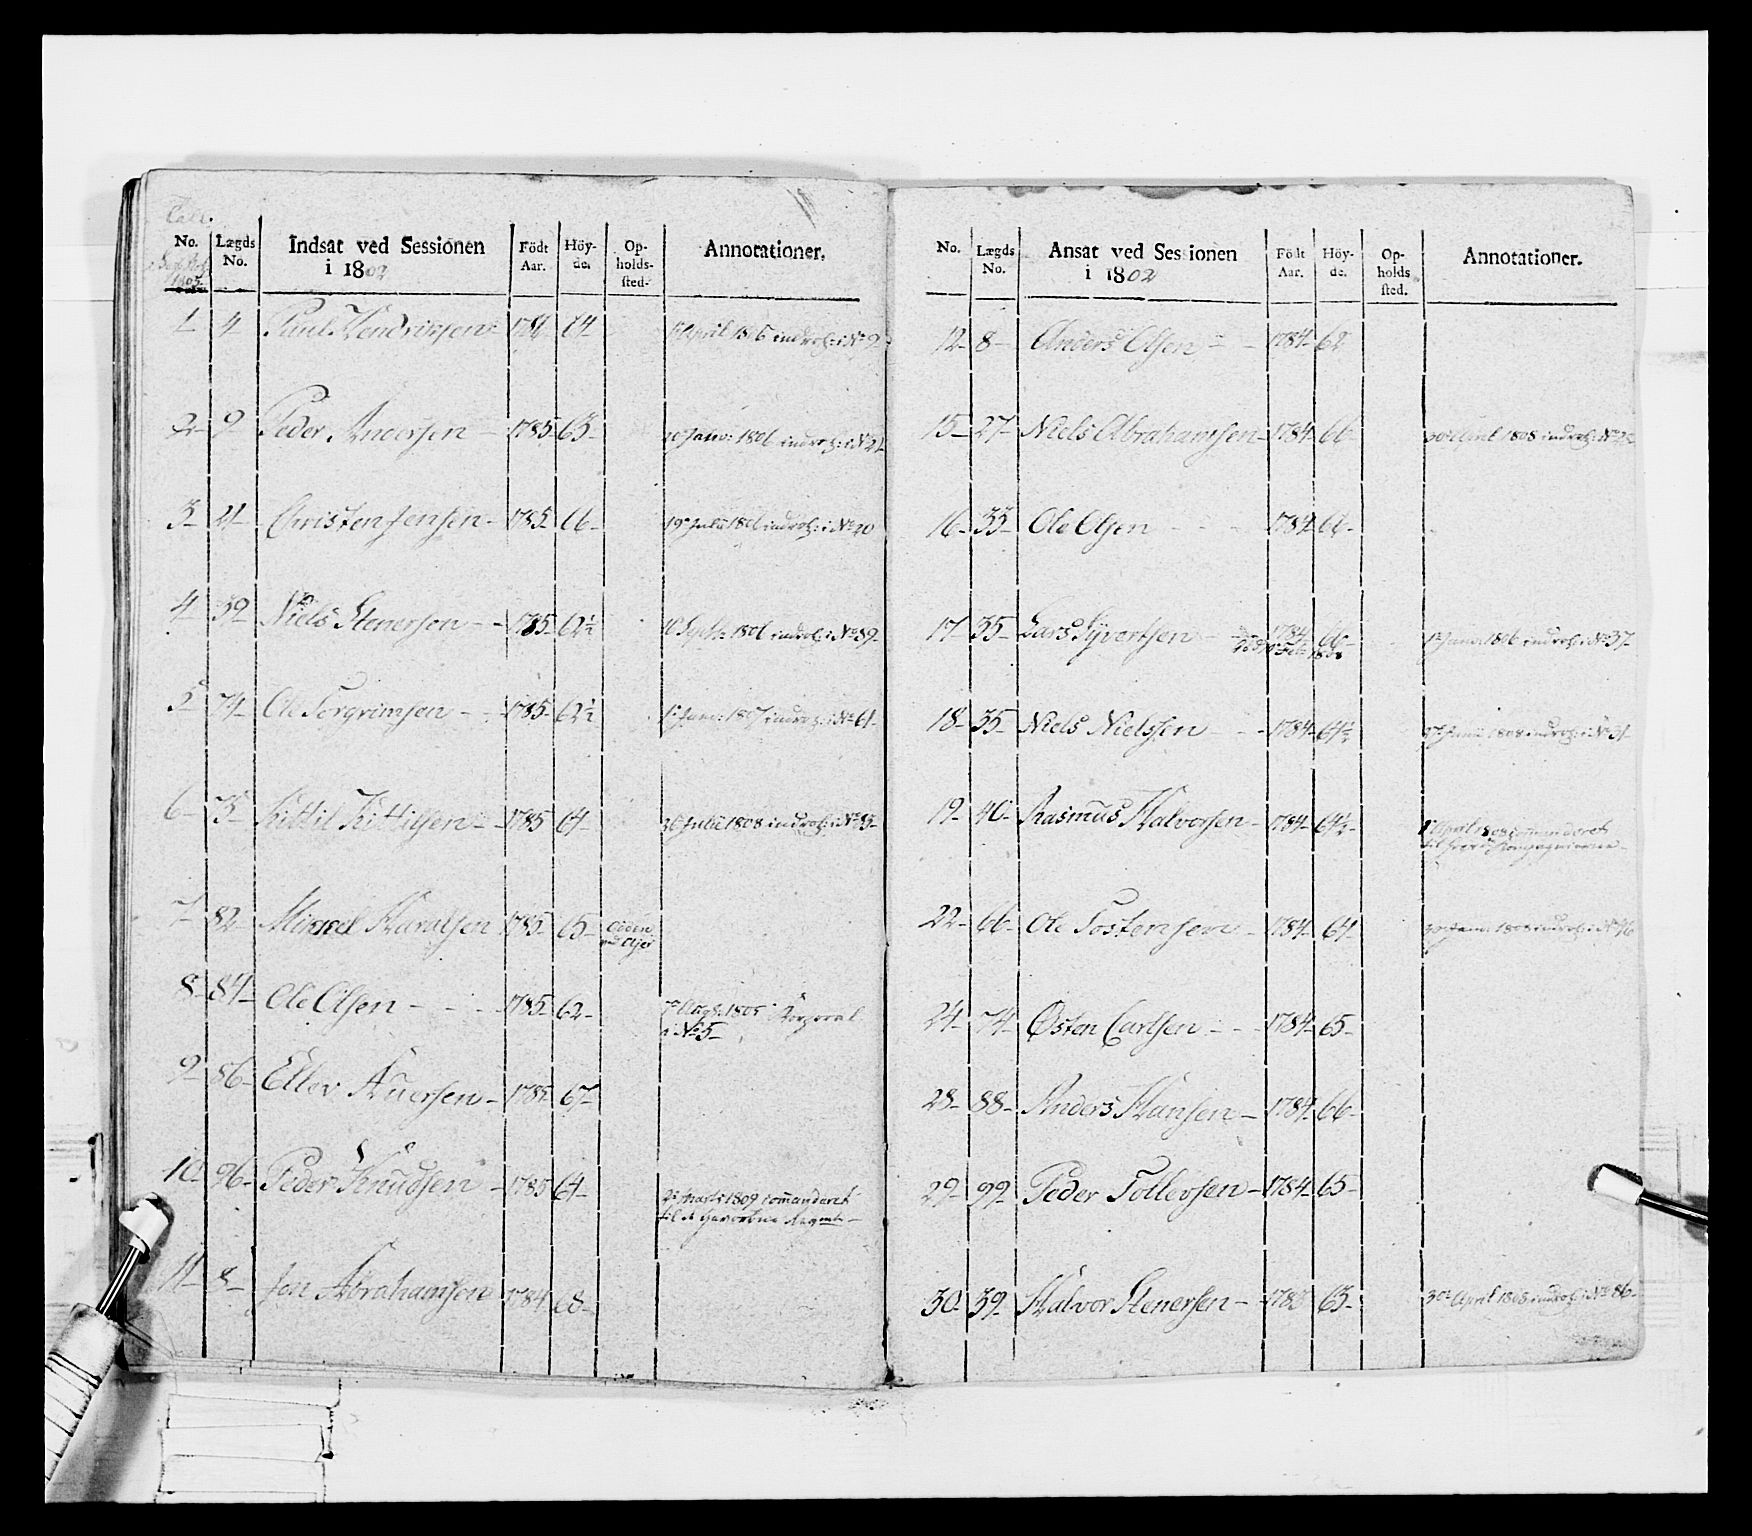 No. Lægds No. Indsat ved Sessionen i 1802 Födt Aar. Höyde. Opholdssted. Annotationer.
1 4 Paul Hendrichsen 64 1 April 1806 indrol: i No 2
2 9 Peder Andersen 1785 63 Janv: 1806 indrol: i No 21
3 21 Christen Jensen 1785 66 19 Julii 1806 indrol: i No 20
4 39 Niels Stenersen 1785 62½ Septb: 1806 indrol: i No 89
5 74 Ole Torgrimsen 1785 62½ 1 Janv: 1807 indrol: i No 61
6 75 Kittil Kittilsen 1785 64 Julii 1808 indrol: i No 85
7 82 Mikkel Haralsen 1785 65
8 84 Ole Olsen 1785 62 7 Aug: 1805 Korporal
i No 5
9 86 Ellev Auersen 1785 67
10 96 Peder Knudsen 1785 64 Marti 1809 commanderet
til
11 8 Jon Abrahamsen 1784 68
No. Lægds No. Ansat ved Sessionen i 1802 Födt Aar. Höyde. Opholdssted. Annotationer.
12 8 Anders Olsen 1784 62
15 27 Niels Abrahamsen 1784 66 April 1808 indrol: No
16 35 Ole Olsen 1784
17 35 Lars Syvertsen 1784 66 1 Janv: 1806 indrol: i No 37
18 35 Niels Nielsen 1784 64½ 1808 indrol: i No 31
19 40 Rasmus Halvorsen 1784 64½ 1 April 1808 commanderet
til
22 66 Ole Tostensen 1784 64 Janv: 1808 indrol: i No 46
24 74 Østen Carlsen 1784 65
28 88 Anders Hansen 1784 66
29 99 Peder Tollevsen 1784 65
30 39 Halvor Stenersen 1783 63 30 April 1808 indrol: i No 86